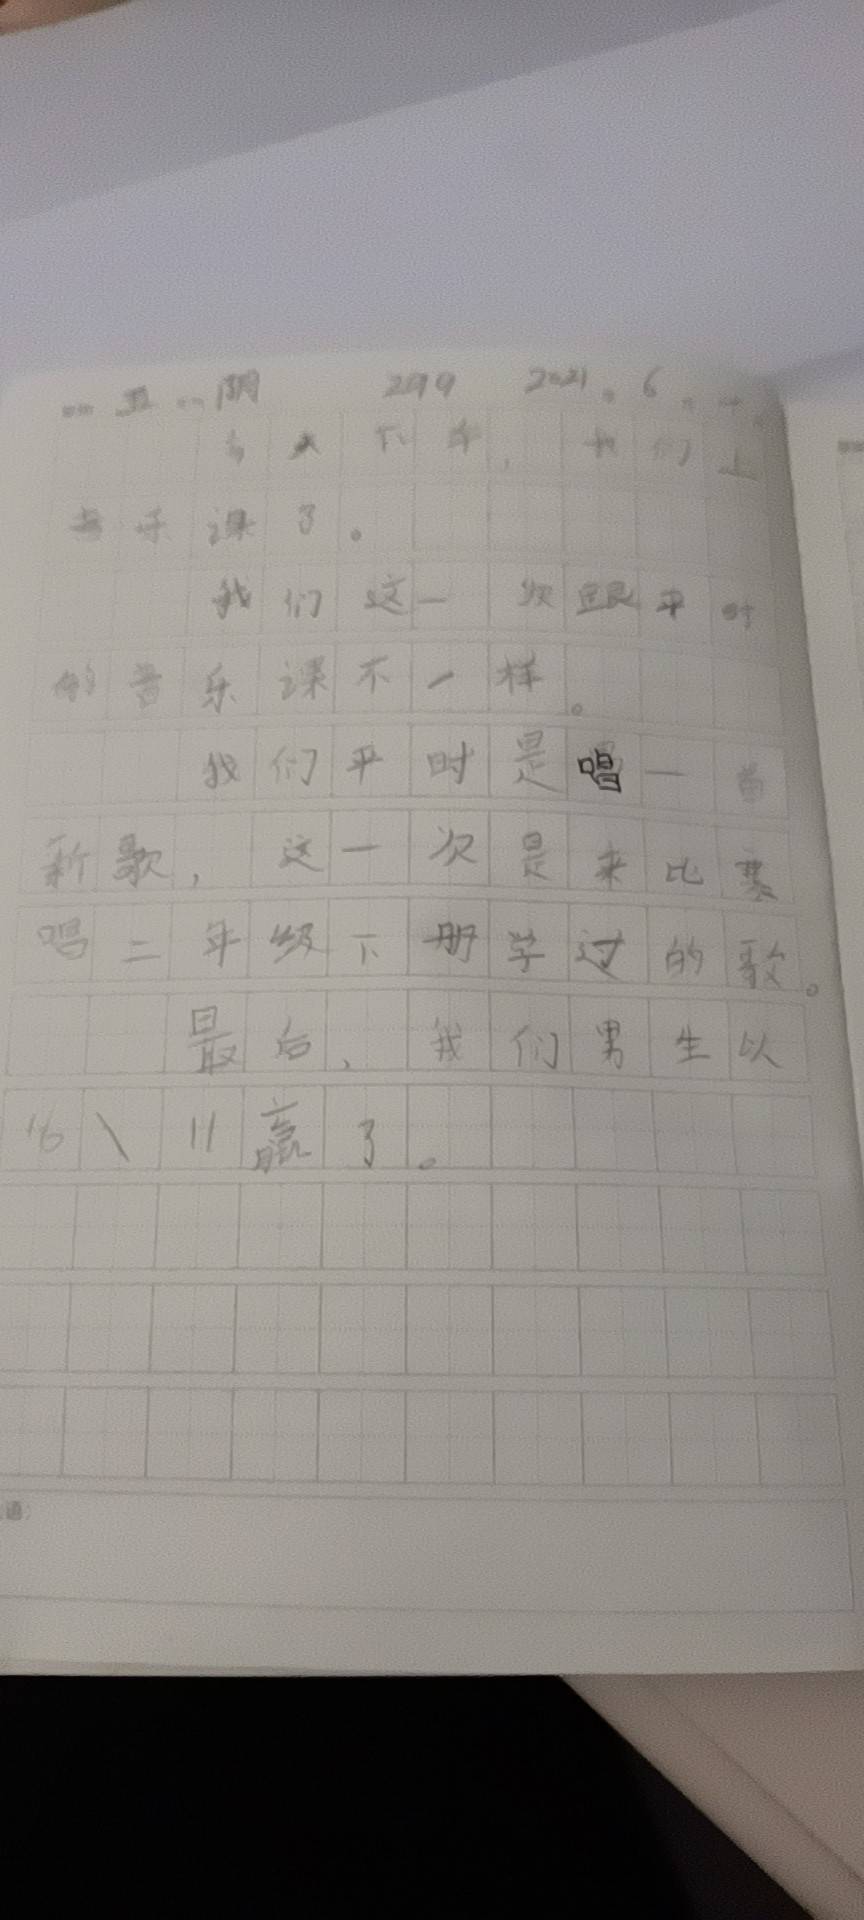 五 阴 299 2021.6.
今天下午,我们上
音乐课了。
我们这一次跟平时
的音乐课不一样。
我们平时是唱一首
新歌,这一次是来比赛
唱二年级下册学过的歌。
最后,我们男生以
16\11赢了。